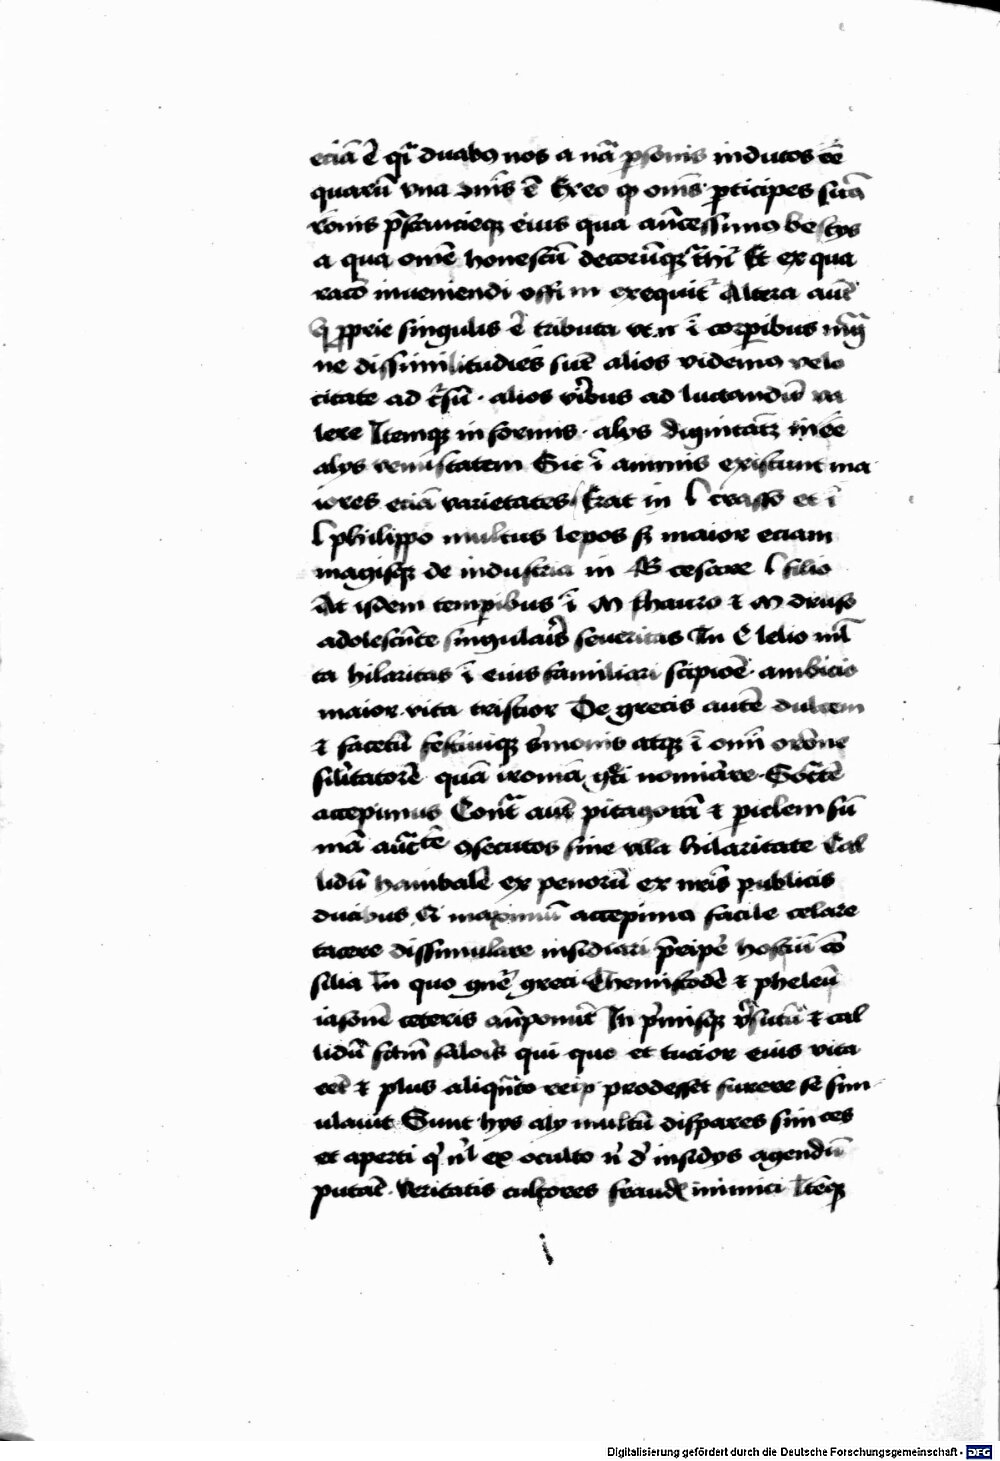 etiā ē qͥa duabꝰ nos a nāͣ ꝑsonis indutos eē
quarū vna ɔmīs ē Ex eo qꝫ om̄s ꝑticipes sum
rōnis p̄stancieqꝫ eius qua antecessimꝰ bestys
a qua om̄e honestū decorūqꝫ thͥ Et ex qua
racō inueniendi offi m exequit᷑ Altera aut᷑
q̄ ꝓpie singulis ē tributa vt n̄ ī corꝑibus mͣg
ne dissimilitudīes sūt alios videmꝰ velo
citate ad cͥsū · alios virͥbus ad luctandū va
lere Itemqꝫ in formis · alys dignitatē inēē
alys venustatem Sic ī animis existunt ma
iores etiā varietates Erat in L crasso et ī
L philippo multus lepos sꝫ maior eciam
magisqꝫ de industria in G cesare L filio
At isdem temꝑibus ī M schauro ⁊ M druso
adolescēte singularͥs seueritas In C lelio ml̄
ta hilaritas ī eius familiari scipiōe · ambicio
maior · vita tristior De grecis autē dulcem
⁊ facetū festiuiqꝫ sermonis atqꝫ ī om̄i orōne
sil̓tatorē quā ironiā gͤci nomīare · Socͣtē
accepimus Conͣt aut᷑ pitagorā ⁊ ꝑiclem sū
mā auctͣtē ꝯsecutos sine vlla hilaritate Cal
lidū hanibalē ex penorū ex nrīs publicis
ducibus Q maximū accepimꝰ facile celare
tacere dissimulare insidiari p̄ripe᷑ hostiū cō
silia In quo gn̄e᷑ greci Themistodē ⁊ pheleū
iasonē ceteris an̄ponūt In p̄misqꝫ vͥsutū ⁊ cal
lidū fcm̄ salōis qui quo et tucior eius vita
eēt ⁊ plus aliqͣnto reip prodesset furere se sim
ulauit Sunt hys aly multū dispares simces
et aperti qͥ n̄l ex oculto n̄ dͤ insidys agendū
putāt · Veritatis cultores fraudꝭ inimici Itēqꝫ
Digitalisierung gefördert durch die Deutsche Forschungsgemeinschaft - DFG